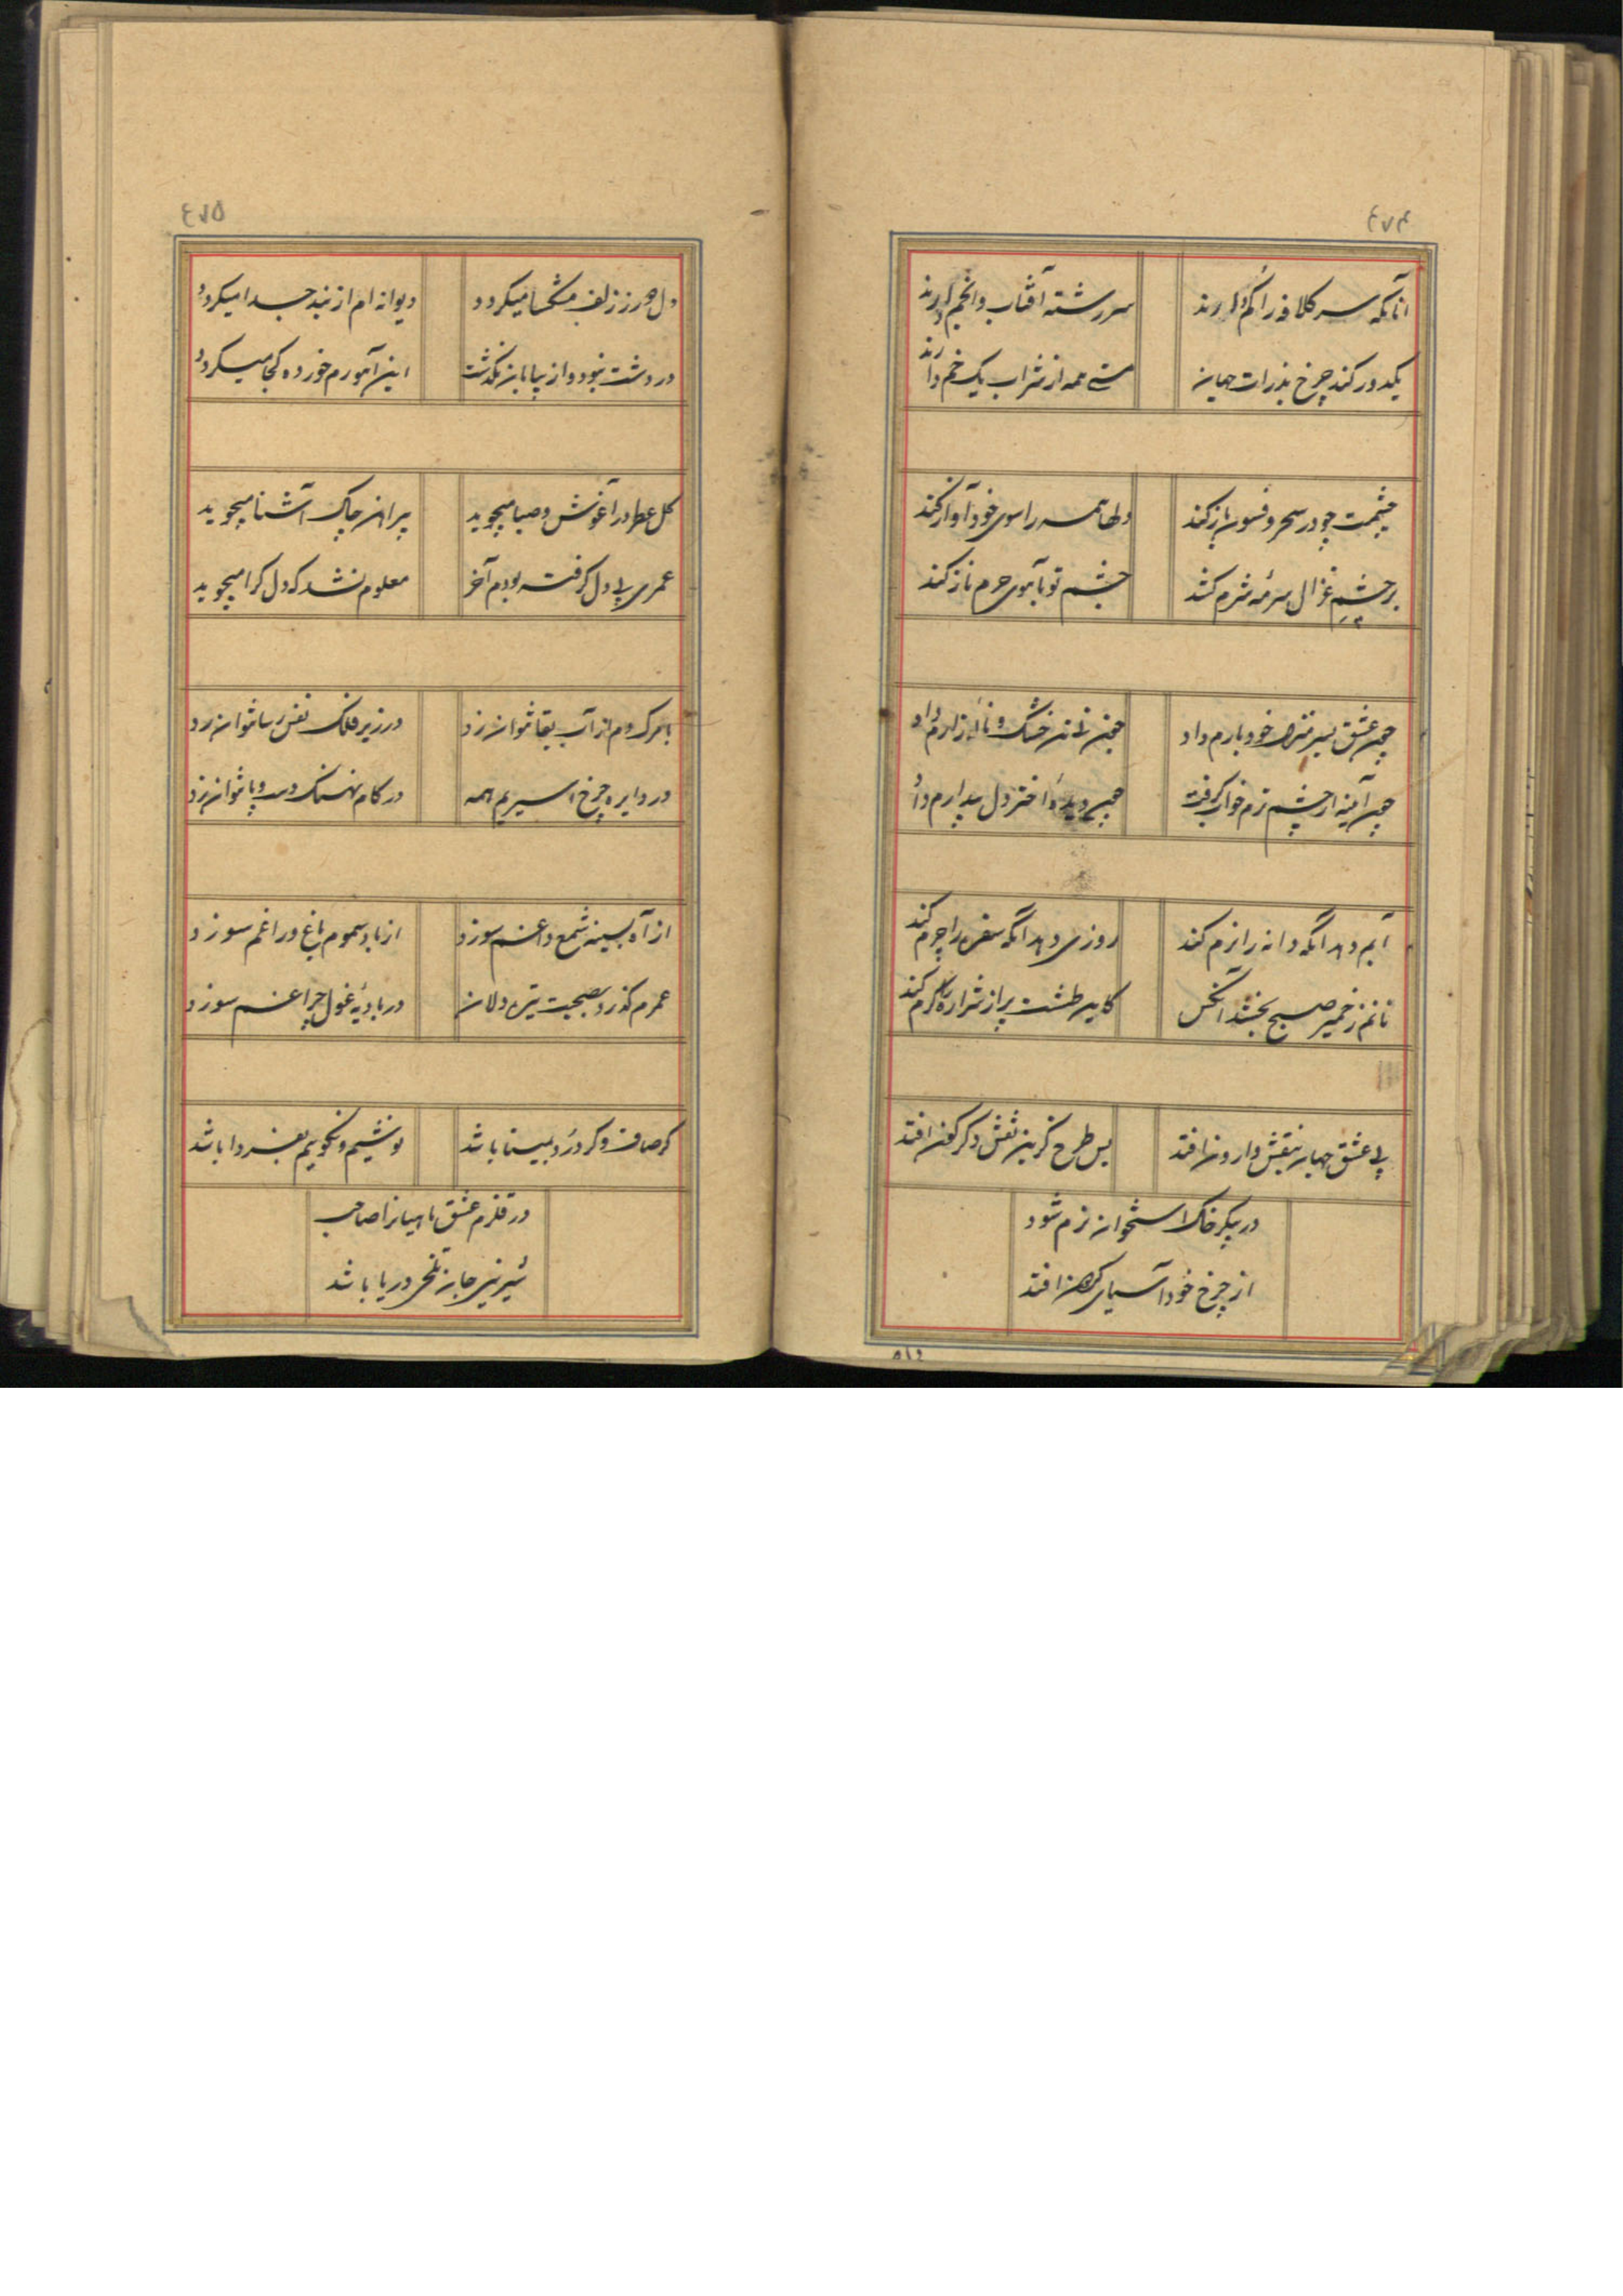 ۴۷۴
آنانکه سر کلافه را گم دارند
سررشته آفتاب و انجم دارند
یکدور کند چرخ بذرات جهان
مستی همه از شراب یک خم دارند
چشمت چو در سحر و فسون باز کند
دلها همه را سوی خود آواز کند
بر چشم غزال سرمه شرم کشد
چشم تو بآهوی حرم ناز کند
چون عشق بسر منزل خود بارم داد
تن خشک و نالهٔ زارم داد
چون آینه از چشم ترم خواب گرفت
چون دیدهٔ اختر دل بیدارم داد
آبم دهد آنکه دانه را نرم کند
روزی دهد آنکه سفره را چرم کند
نانم ز خمیر صبح بخشد آنکس
کاین طشت پر از شراره را گرم کند
بی عشق جهان بنقش وارون افتد
بس طرح کزین نقش دگرگون افتد
در پیکر خاک استخوان نرم شود
از چرخ خود آسیای گردون افتد
۵۱۶
۴۷۵
دل دور ز زلف مشکسا میگردد
دیوانه ام از بند جدا میگردد
در دشت نبود و از بیابان نگذشت
این آهو رم خورده کجا میگردد
گل عطر در آغوش صبا میجوید
پیراهن چاک آشنا میجوید
عمری پی دل گرفته بودم آخر
معلوم نشد که دل کرا میجوید
با مرگ دم از آب بقا نتوان زد
در زیر فلک نفس رسا نتوان زد
در دایره چرخ اسیریم همه
در کام نهنگ دست و پا نتوان زد
از آه بسینه شمع داغم سوزد
از باد سموم باغ و راغم سوزد
عمرم گذرد بصحبت تیره دلان
در بادیهٔ غول چراغم سوزد
گر صاف و گر درد بمینا باشد
نوشیم و نگوییم بفردا باشد
در قلزم عشق ماهیان را صاحب
شیرینی جان ز تلخی دریا باشد